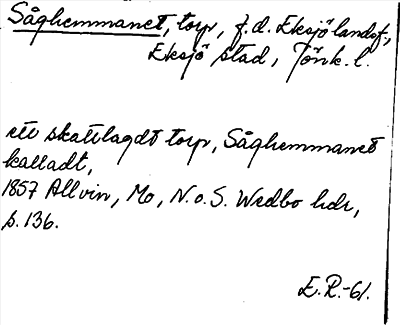 Såghemmanet, torp, f.d. Eksjö landsf.,
Eksjö stad, Jönk. l.
ett skattlagdt torp, Såghemmanet
kalladt,
1857 Allvin, Mo, N.o.S. Wedbo hdr,
s. 136.
E.R.-61.